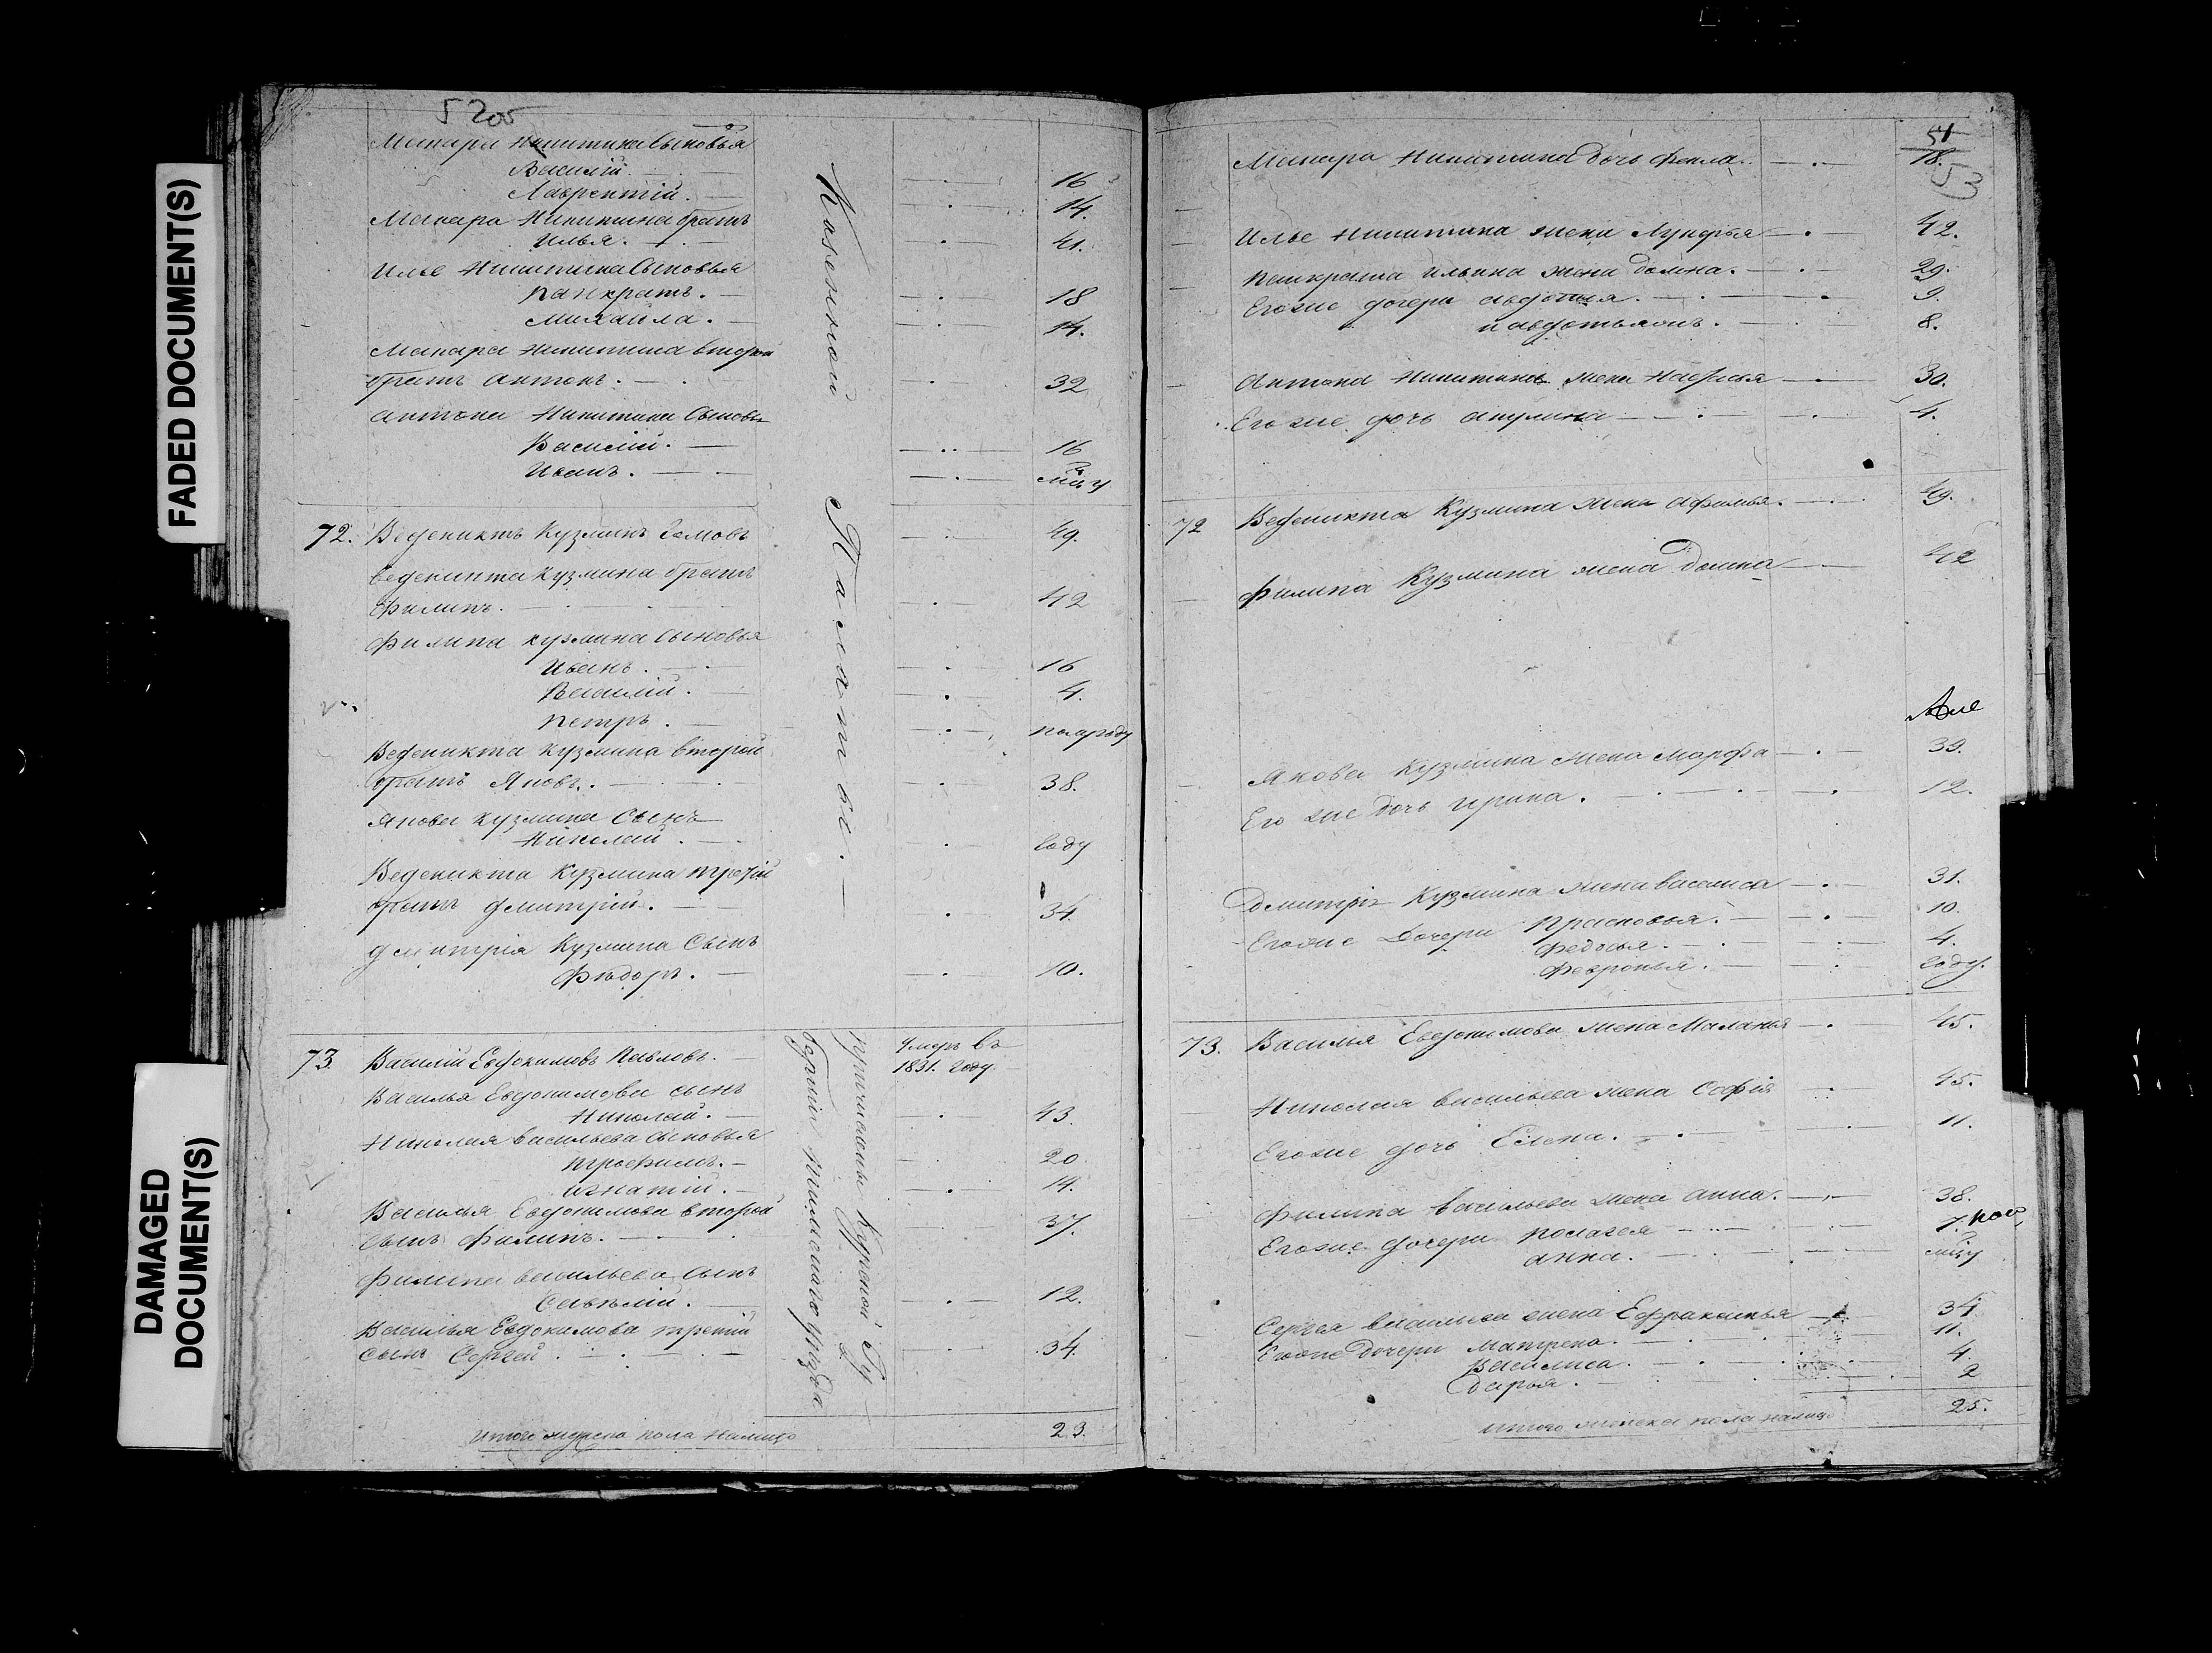 FADED DOCUMENT(S)
DAMAGED
DOCUMENT(S)
5 205
Макара Никитина Сыновья
Василiй. 16
Лаврентiй. 14.
Макара Никитина братъ
Илья. 41.
Илье Никитина Сыновья
Панкратъ. 18
Михаила. 14.
Макара Никитина второй
братъ Антонъ. 32
Антона Никитина Сыновья
Василiй. 16
Иванъ. мцу
Казенной Палаты.
72. Веденикть КузминъЗемовъ 49.
Веденикта Кузмина братъ
Филипъ. 42
Филипа Кузмина Сыновья
Иванъ. 16
Василiй. 4.
Петръ. полугоду
Веденикта Кузмина второй
братъ Яковъ. 38.
Якова Кузмина Сынъ
Николай. году
Веденикта Кузмина третiй
братъ Дмитрiй. 34.
Дмитрiя Кузмина Сынъ
Фѣдоръ. 10.
73. Василiй Евдокимовъ Павловъ. умеръ въ
1831. году
Василья Евдокимова сынъ
Николай. 43.
Николая Васильева сыновья
Трофимъ. 20
Игнатiй. 14.
Василья Евдокимова второй
сынъ Филипъ. 37.
Филипа Васильева сынъ
Савѣлiй. 12.
Василья Евдокимова третiй
сынъ Сергѣй. 34.
причислены Курской Гу
бернiи уѣзда
Итого мужеска пола налицо 23.
51
53
Макара Никитина дочь Фекла. 18.
Илье Никитина жена Лукерья 42.
Панкрата Ильина жена Домна. 29.
Егоже дочери Авдотья. 9.
и Авдотья онъ. 8.
Антона Никитина жена Настасья 30.
Егоже дочь Акулина 4.
72 Веденикта Кузмина жена Афимья. 49.
Филипа Кузмина жена Домна 42
Якова Кузмина жена Марфа 39.
Его же дочь Ирина. 12.
Дмитрiя Кузмина жена Василиса 31.
Егоже Дочери Прасковья. 10.
Федосья. 4.
Февронья. году.
73. Василья Евдокимова жена Маланья 45.
Николая Васильева жена Софiя 45.
Егоже дочь Елена. 11.
Филипа Васильева жена Анна. 38.
Егоже дочери Полагея 7.
Анна. мцу
Сергея Васильева жена Ефраксинья 34.
Егоже Дочери Матрена. 11.
Василиса. 4.
Дарья. 2
Итого женска пола налицо 25.